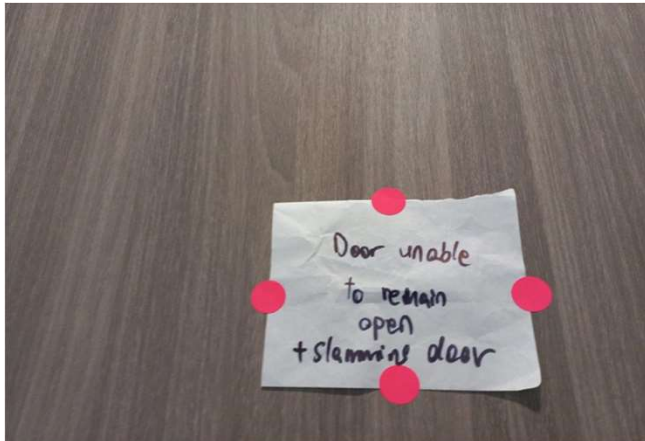 Door unable
to remain
open
+ slamming door